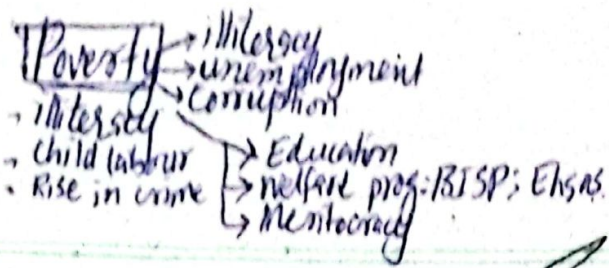 Poverty → illiteracy
→ unemployment
→ Corruption
→ illiteracy
→ Child labour
• Rise in crime
→ Education
→ Welfare prog: BISP; Ehsas
→ Meritocracy